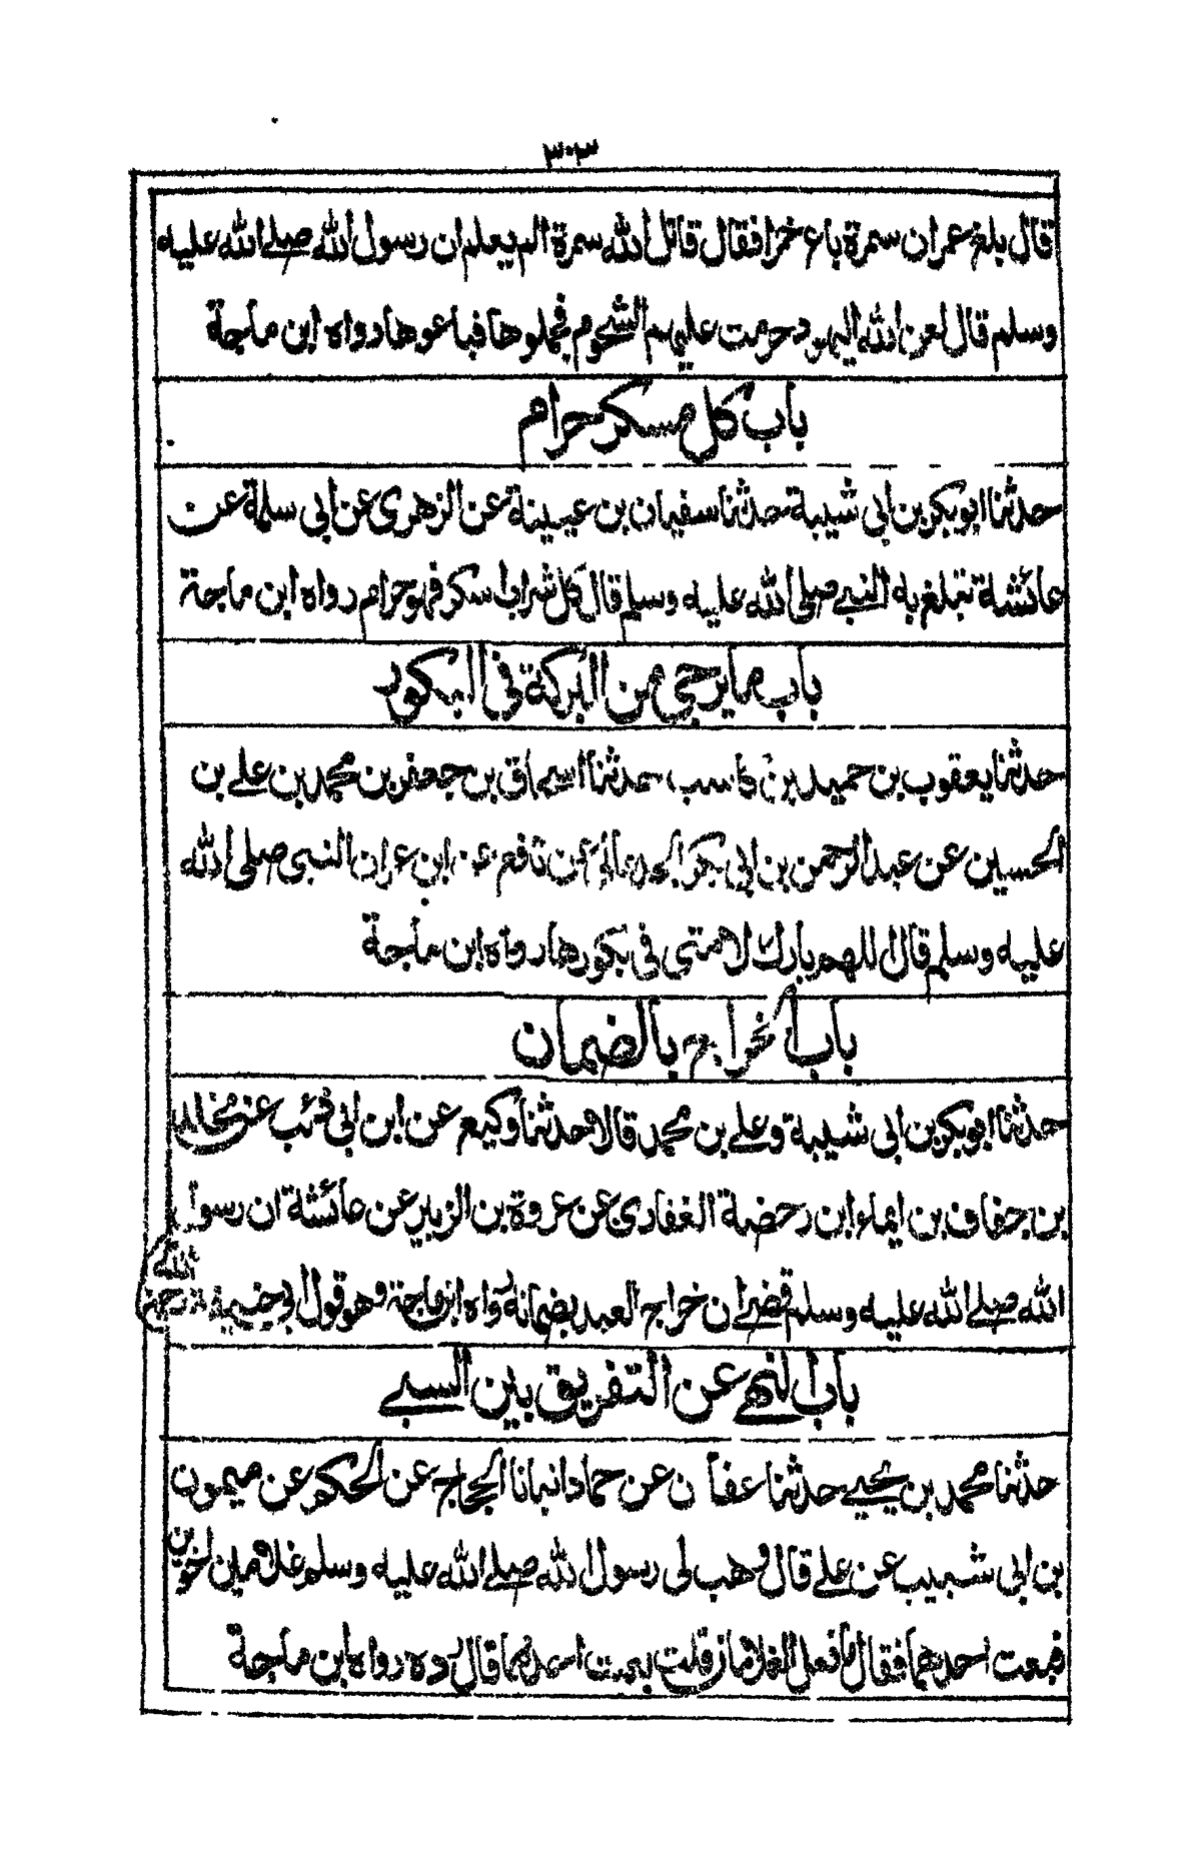 ٣٠٣
قال بلغ عمران سمرة باع خمرا فقال قاتل الله سمرة الم يعلم ان رسول الله صلے الله عليه
وسلم قال لعن الله اليهود حرمت عليهم الشحوم فجملوها فباعوها رواه ابن ماجة
باب كل مسكر حرام
حدثنا ابو بكر بن ابى شيبة حدثنا سفيان بن عيينة عن الزهرى عن ابى سلمة عن
عائشة تبلغ به النبے صلى الله عليه وسلم قال كل شراب اسكر فهو حرام رواه ابن ماجة
باب ما يرجى من البركة فى البكور
حدثنا يعقوب بن حميد بن كاسب حدثنا اسحاق بن جعفر بن محمد بن علے بن
الحسين عن عبد الرحمن بن ابى بكر الجدعانى عن نافع عن ابن عمر ان النبى صلى الله
عليه وسلم قال اللهم بارك لامتى فى بكورها رواه ابن ماجة
باب الخراج بالضمان
حدثنا ابو بكر بن ابى شيبة وعلے بن محمد قالا حدثنا وكيع عن ابن ابى ذئب عن مخلد
بن خفاف بن ايماء ابن رحضة الغفارى عن عروة بن الزبير عن عائشة ان رسول
الله صلے الله عليه وسلم قضے ان خراج العبد بضمانه رواه ابن ماجة وهو قول ابى حنيفة رحمة الله
باب النهے عن التفريق بين السبے
حدثنا محمد بن يحيے حدثنا عفان عن حماد انبانا الحجاج عن الحكم عن ميمون
بن ابى شبيب عن علے قال وهب لى رسول الله صلے الله عليه وسلم غلامين اخوين
فبعت احدهما فقال ما فعل الغلامان قلت بعت احدهما قال رده رواه ابن ماجة